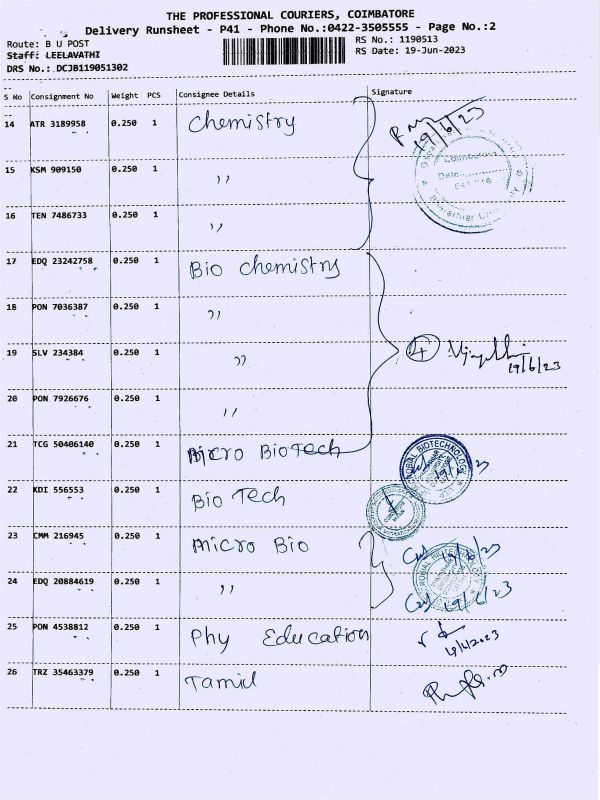 THE PROFESSIONAL COURIERS, COIMBATORE
Delivery Runsheet - P41 - Phone No.:0422-3505555 - Page No.:2
Route: B U POST
RS No.: 1190513
Staff: LEELAVATHI
RS Date: 19-Jun-2023
DRS No.: DCJB119051302
S No Consignment No Weight PCS Consignee Details Signature
14 ATR 3189958 0.250 1 Chemistry
19/6/23
Coimbatore
Date
15 KSM 909150 0.250 1 ,,
16 TEN 7486733 0.250 1 ,,
17 EDQ 23242758 0.250 1 Bio Chemistry
18 PON 7036387 0.250 1 ,,
19 SLV 234384 0.250 1 ,, 4
19/6/23
20 PON 7926676 0.250 1 ,,
21 TCG 50406140 0.250 1 Micro BioTech
22 KDI 556553 0.250 1 Bio Tech
23 CMM 216945 0.250 1 Micro Bio 19/6/23
24 EDQ 20884619 0.250 1 ,, 19/6/23
25 PON 4538812 0.250 1 Phy Education
19/6/2023
26 TRZ 35463379 0.250 1 Tamil